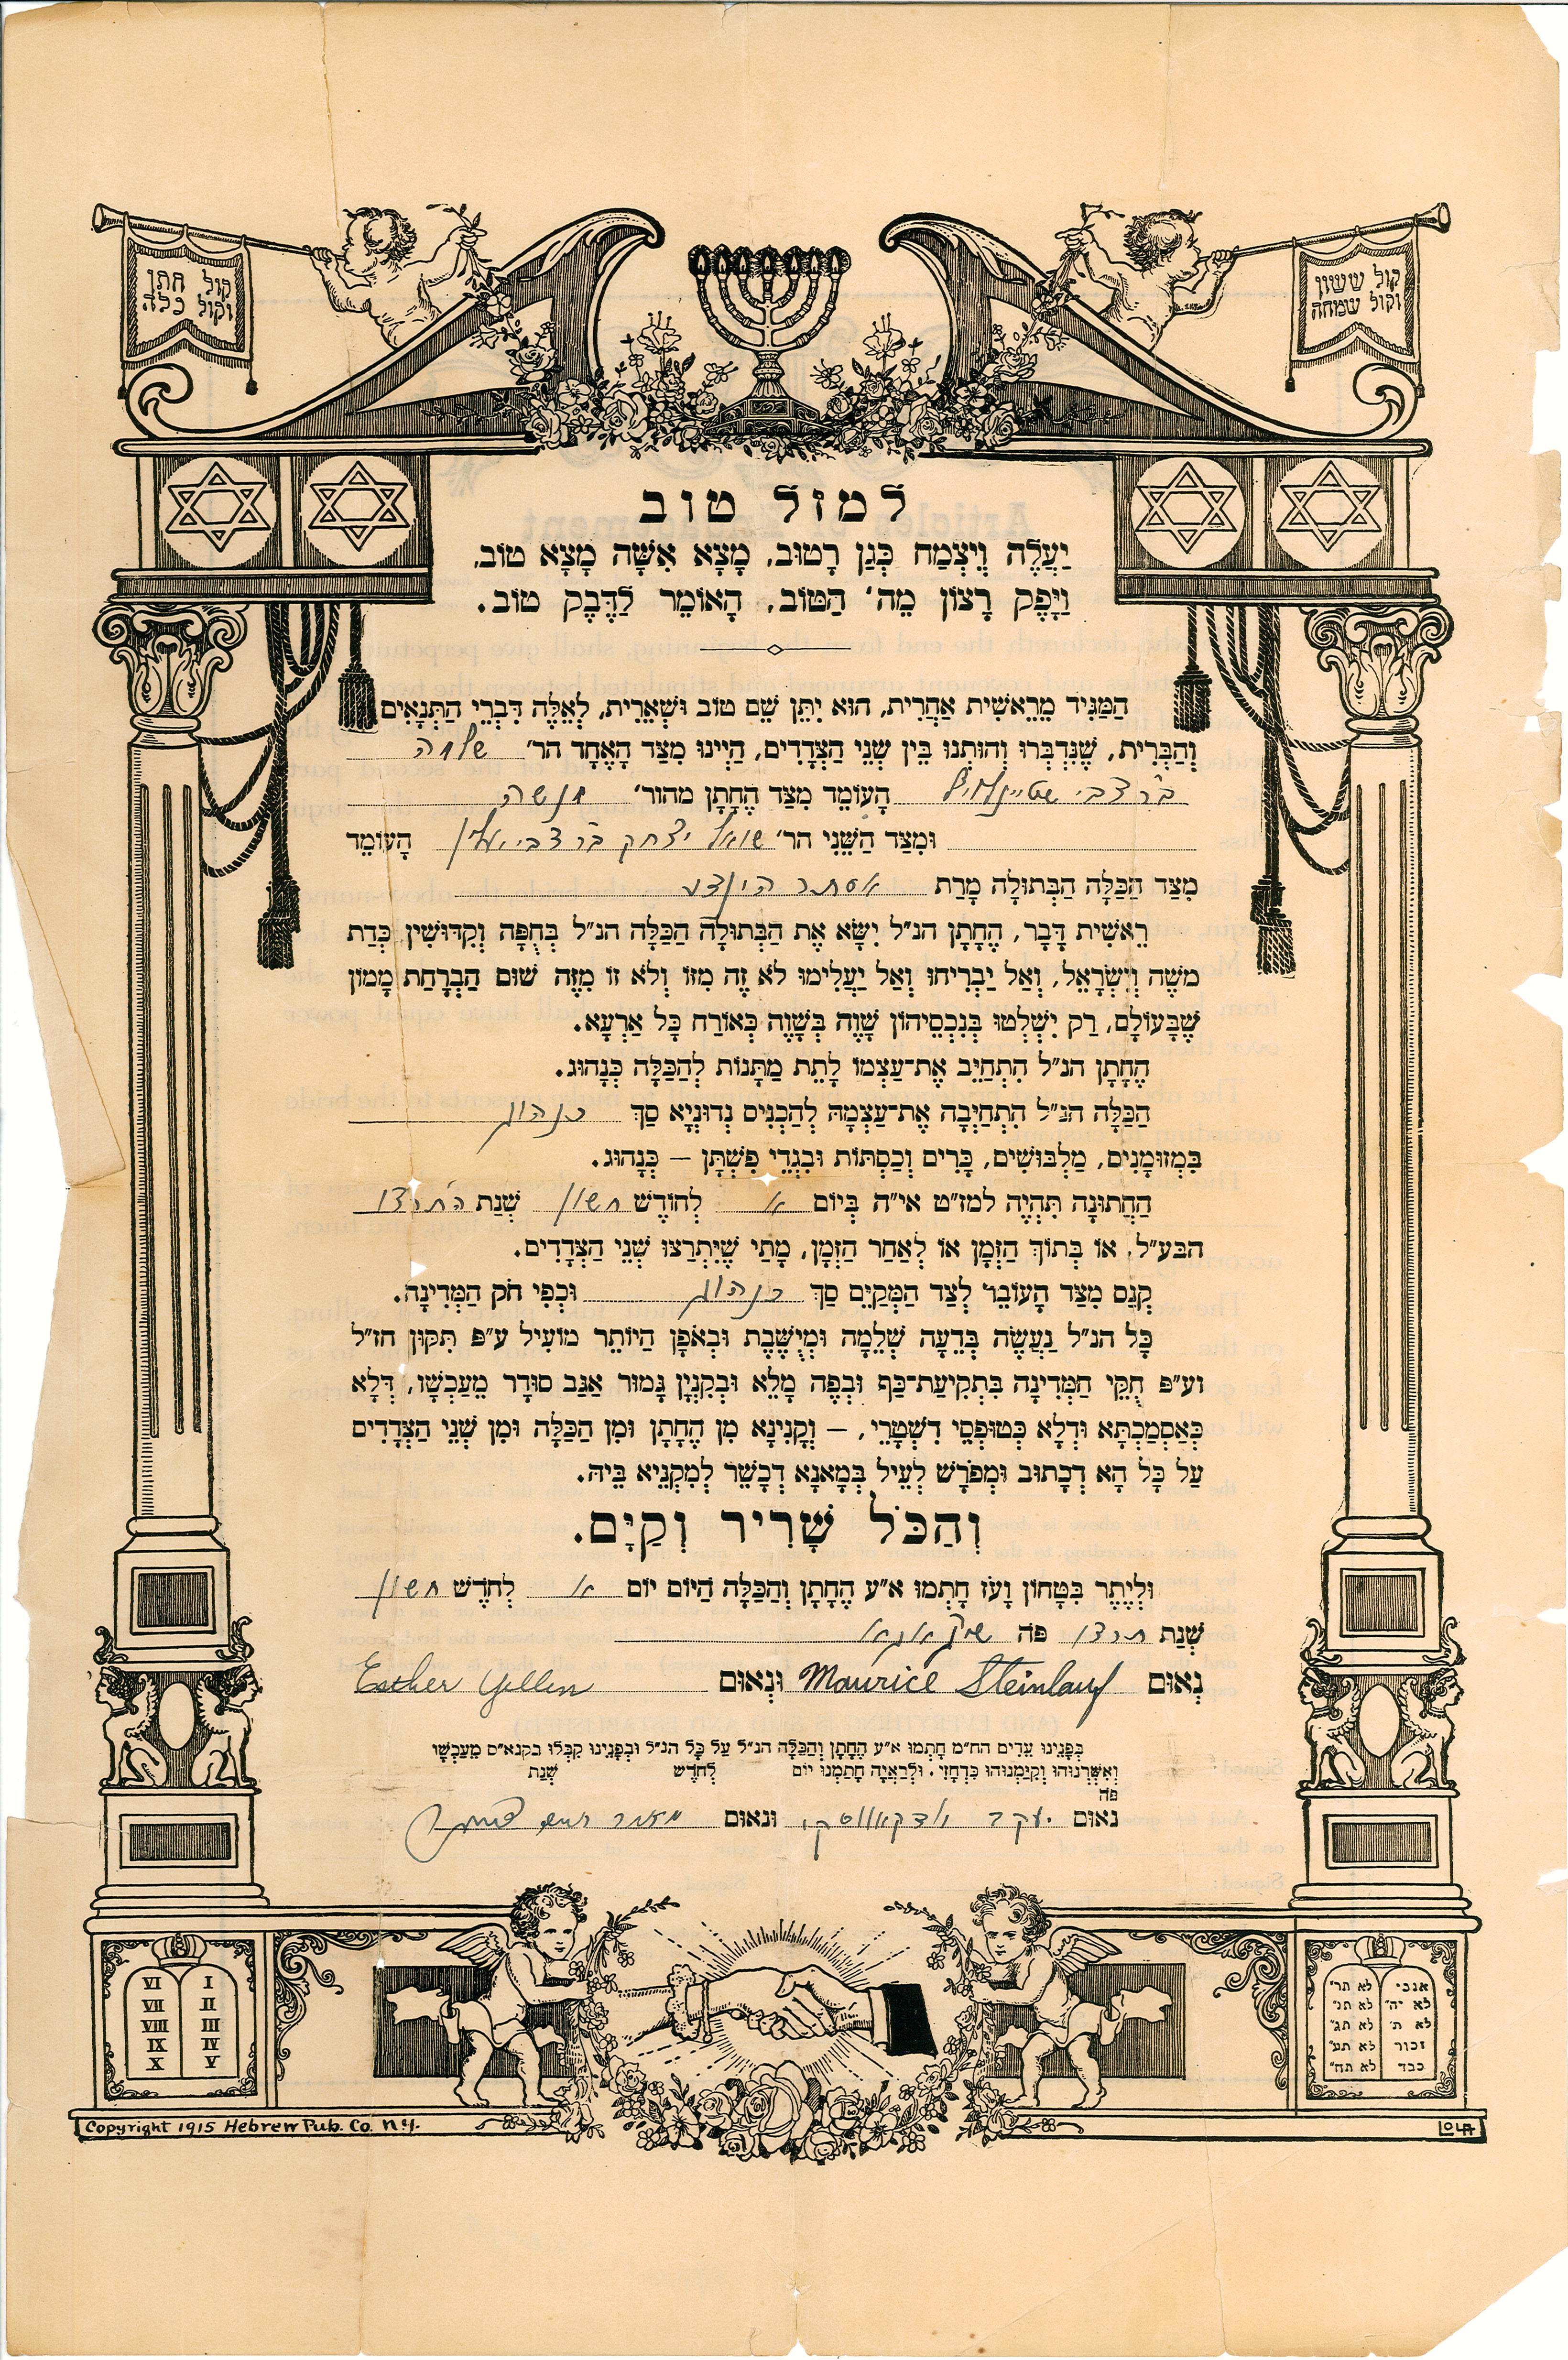 קול ששון
וקול שמחה
קול חתן
וקול כלה
למזל טוב
יַעֲלֶה וְיִצְמַח כְּגַן רָטוּב, מָצָא אִשָּׁה מָצָא טוֹב,
וַיָּפֶק רָצוֹן מֵה' הַטּוֹב, הָאוֹמֵר לַדֶּבֶק טוֹב.
הַמַּגִּיד מֵרֵאשִׁית אַחֲרִית, הוּא יִתֵּן שֵׁם טוֹב וּשְׁאֵרִית, לְאֵלֶּה דִּבְרֵי הַתְּנָאִים
וְהַבְּרִית, שֶׁנִּדְבְּרוּ וְהוּתְנוּ בֵּין שְׁנֵי הַצְּדָדִים, הַיְינוּ מִצַּד הָאֶחָד הר' שלמה
ב"ר צבי שטיינלויף הָעוֹמֵד מִצַּד הֶחָתָן מהור' מנשה
וּמִצַּד הַשֵּׁנִי הר' שמואל יצחק ב"ר צבי יעלין הָעוֹמֵד
מִצַּד הַכַּלָּה הַבְּתוּלָה מָרַת אסתר הינדע
רֵאשִׁית דָּבָר, הֶחָתָן הנ"ל יִשָּׂא אֶת הַבְּתוּלָה הַכַּלָּה הנ"ל בְּחֻפָּה וְקִדּוּשִׁין כְּדַת
משֶׁה וְיִשְׂרָאֵל, וְאַל יַבְרִיחוּ וְאַל יַעֲלִימוּ לֹא זֶה מִזּוֹ וְלֹא זוֹ מִזֶּה שׁוּם הַבְרָחַת מָמוֹן
שֶׁבָּעוֹלָם, רַק יִשְׁלְטוּ בְּנִכְסֵיהוֹן שָׁוֶה בְּשָׁוֶה כְּאוֹרַח כָּל אַרְעָא.
הֶחָתָן הנ"ל הִתְחַיֵּב אֶת־עַצְמוֹ לָתֵת מַתָּנוֹת לְהַכַּלָּה כְּנָהוּג.
הַכַּלָּה הנ"ל הִתְחַיְּבָה אֶת־עַצְמָהּ לְהַכְנִיס נְדוּנְיָא סַךְ כנהוג
בִּמְזוּמָנִים, מַלְבּוּשִׁים, כָּרִים וְכַסְתּוֹת וּבִגְדֵי פִשְׁתָּן – כְּנָהוּג.
הַחֲתוּנָּה תִּהְיֶה למז"ט אי"ה בְּיוֹם א לְחוֹדֶשׁ חשון שְׁנַת ה'תרצו
הבע"ל, אוֹ בְּתוֹךְ הַזְּמָן אוֹ לְאַחַר הַזְּמָן, מָתַי שֶׁיִּתְרַצּוּ שְׁנֵי הַצְּדָדִים.
קְנָס מִצַּד הָעוֹבֵר לְצַד הַמְּקַיֵּם סַךְ כנהוג וּכְפִי חֹק הַמְּדִינָה.
כָּל הנ"ל נַעֲשֶׂה בְּדֵעָה שְׁלֵמָה וּמְיֻשֶּׁבֶת וּבְאֹפֶן הַיּוֹתֵר מוֹעִיל ע"פ תִּקּוּן חז"ל
וע"פ חֻקֵּי הַמְּדִינָה בִּתְקִיעַת־כַּף וּבְפֶה מָלֵא וּבְקִנְיָן גָּמוּר אַגַּב סוּדָר מֵעַכְשָׁו, דְּלָא
כְּאַסְמַכְתָּא וּדְלָא כְּטוּפְסֵי דִשְׁטָרֵי, – וְקָנִינָא מִן הֶחָתָן וּמִן הַכַּלָּה וּמִן שְׁנֵי הַצְּדָדִים
עַל כָּל הָא דְכָתוּב וּמְפֹרָשׁ לְעֵיל בְּמָאנָא דְכָשֵׁר לְמִקְנֵיא בֵּיהּ.
וְהַכֹּל שָׁרִיר וְקַיָּם.
וּלְיֶתֶר בִּטָּחוֹן וָעֹז חָתְמוּ א"ע הֶחָתָן וְהַכַּלָּה הַיּוֹם יוֹם א לְחֹדֶשׁ חשון
שְׁנַת תרצו פה שיקאגא
נְאוּם Maurice Steinlauf וּנְאוּם Esther Yellen
בְּפָנֵינוּ עֵדִים הח"מ חָתְמוּ א"ע הֶחָתָן וְהַכַּלָּה הנ"ל עַל כָּל הנ"ל וּבְפָנֵינוּ קִבְּלוּ בקנא"ס מֵעַכְשָׁו
וְאִשַּׁרְנוּהוּ וְקִיַּמְנוּהוּ כִּדְחָזֵי. וְלִרְאָיָה חָתַמְנוּ יוֹם לְחֹדֶשׁ שְׁנַת
פה
נאום יעקב ונאום מאיר
VI I
VII II
VIII III
IX IV
X V
אנכי לא תר'
לא יה' לא תנ'
לא ת' לא תג'
זכור לא תע'
כבד לא תח'
Copyright 1915 Hebrew Pub. Co. N.Y.
LOLA